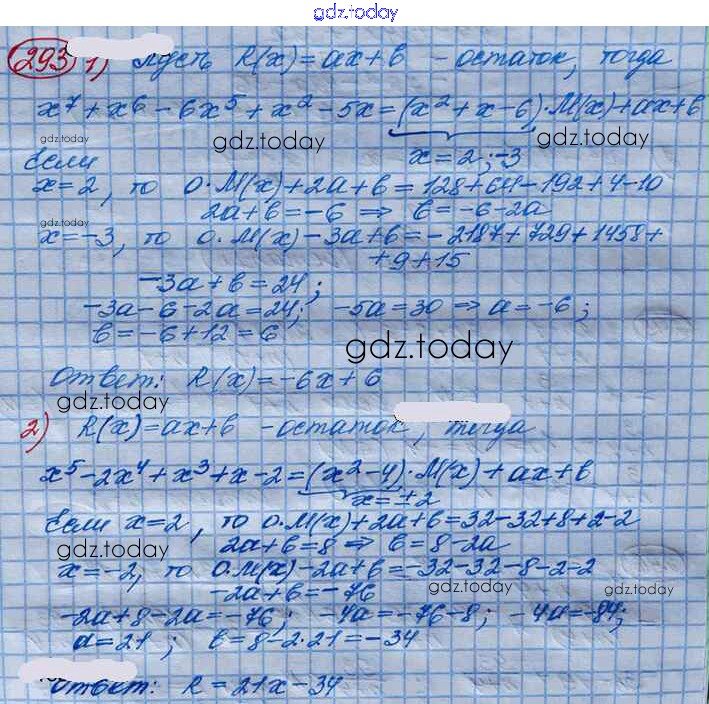 gdz.today
293 1) Пусть R(x)=ax+b - остаток, тогда
x⁷+x⁶-6x⁵+x²-5x=(x²+x-6)·M(x)+ax+b
gdz.today gdz.today
Если x=2;-3
x=2, то 0·M(x)+2a+b=128+64-192+4-10
2a+b=-6 ⇒ b=-6-2a
gdz.today
x=-3, то 0·M(x)-3a+b=-2187+729+1458+
+9+15
-3a+b=24;
-3a-6-2a=24; -5a=30 ⇒ a=-6;
b=-6+12=6
gdz.today
Ответ: R(x)=-6x+6
gdz.today
2) R(x)=ax+b - остаток, тогда
x⁵-2x⁴+x³+x-2=(x²-4)·M(x)+ax+b
x=±2
Если x=2, то 0·M(x)+2a+b=32-32+8+2-2
gdz.today 2a+b=8 ⇒ b=8-2a
x=-2, то 0·M(x)-2a+b=-32-32-8-2-2
-2a+b=-76
gdz.today
-2a+8-2a=-76; -4a=-76-8; -4a=-84;
a=21; b=8-2·21=-34
gdz.today
Ответ: R=21x-34
gdz.today gdz.today